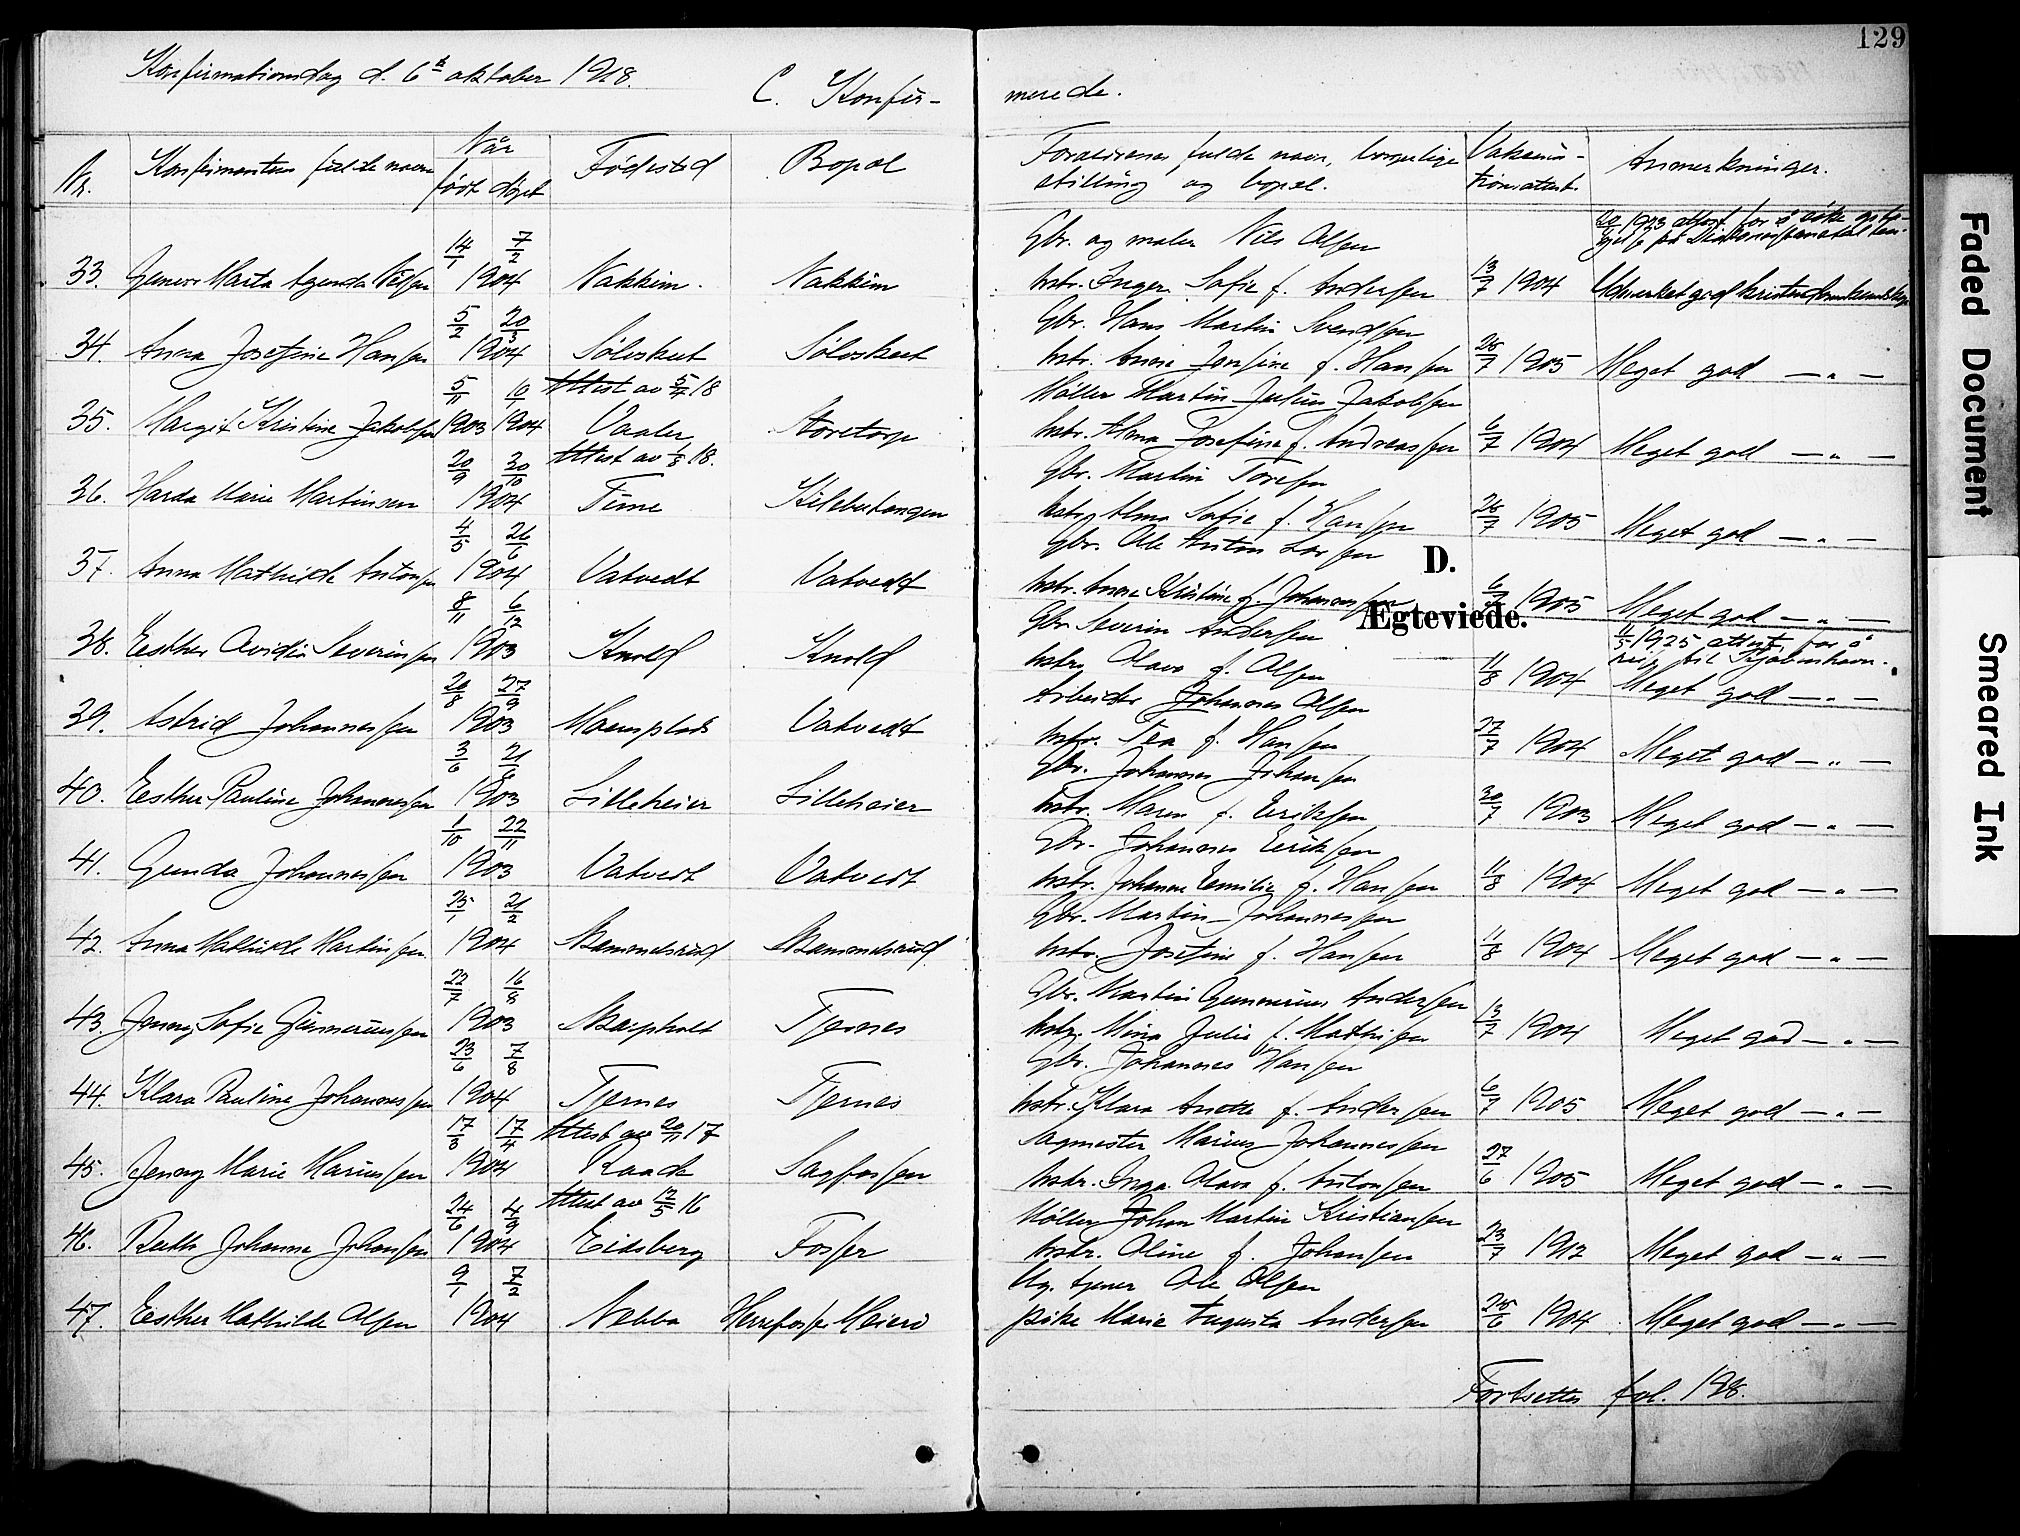 129
Konfirmationsdag d. 6te oktober 1918.
C. Konfir-
merede.
Nr. Konfirmantens fulde navn Når født døpt Fødested Bopæl Forældrenes fulde navn, borgerlige stilling og bopæl. Vaksina-tionsattest. Anmerkninger.
14/1 7/2 Gbr. og maler Nils Olsen
33. Marta Agenda Nilsen 1904 Nakkim. Nakkim hstr. Inger Sofie f. Andersen 13/7 1904
5/2 20/3 Gbr. Hans Martin Svendsen
34. Anna Josefine Hansen 1904 Sølvskut Sølvskut hstr. Anne Josefine f. Hansen 28/7 1905 Meget god — „ —
5/11 Attest av 5/4 18 Møller Martin Julius Jakobsen
35. Margit Kristine Jakobsen 1903 1904 Vaaler Støretorp hstr. Alma Josefine f. Andreassen 6/7 1904 Meget god — „ —
20/9 30/10 Attest av 1/8 18. Gbr. Martin Toresen
36. Harda Marie Martinsen 1904 Time Kilebutangen hstr. Alma Sofie f. Hansen 28/7 1905 Meget god — „ —
4/5 26/6 Gbr. Ole Anton Larsen
D.
37. Anna Mathilde Antonsen 1904 Vatvedt Vatvedt hstr. Anne Kristine f. Johannessen 6/7 1905 Meget god — „ —
Ægteviede.
8/11 6/12 Gbr. Severin Andersen 1925 attest for å reise til Kjøbenhavn.
38. Esther Ovidia Severinsen 1903 Knold Knold hstr. Olava f. Olsen 11/8 1904 Meget god — „ —
20/8 27/9 Arbeider Johannes Olsen
39. Astrid Johannessen 1903 Moensplads Vatvedt hstr. Tea f. Hansen 27/7 1904 Meget god — „ —
3/6 Gbr. Johannes Johansen
40. Esther Pauline Johannessen 1903 Lilleheier Lilleheier hstr. Maren f. Eriksen 30/7 1903 Meget god — „ —
1/10 22/11 Gbr. Johannes Eriksen
41. Gunda Johannessen 1903 Vatvedt Vatvedt hstr. Johanne Emilie f. Hansen 11/8 1904 Meget god — „ —
25/1 21/2 Gbr. Martin Johannessen
42. Anna Mathilde Martinsen 1904 hstr. Josefine f. Hansen 11/8 1904 Meget god — „ —
22/7 16/8 Gbr. Martin Gunnerius Andersen
43. Jenny Sofie Gunneriussen 1903 Tjernes hstr. Mina Julie f. Mathisen 13/7 1904 Meget god — „ —
23/6 7/8 Gbr. Johannes Hansen
44. Klara Pauline Johannessen 1904 Tjernes Tjernes hstr. Klara Anette f. Andersen 6/7 1905 Meget god — „ —
17/3 17/4 Attest av 20/11 17 Sagmester Marius Johannessen
45. Jenny Marie Mariussen 1904 Raade Sagfossen hstr. Inga Olava f. Antonsen 27/6 1905 Meget god — „ —
24/6 4/9 Attest av 12/5 16 Møller Johan Martin Kristiansen
46. Ruth Johanne Johansen 1904 Eidsberg Fosser hstr. Oline f. Johansen 23/7 1912 Meget god — „ —
9/1 7/2 Ug. tjener Ole Olsen
47. Esther Mathilde Olsen 1904 Nebba Herrefosser Meieri pike Marie Augusta Andersen 28/6 1904 Meget god — „ —
Fortsettes fol. 198.
Faded Document
Smeared Ink